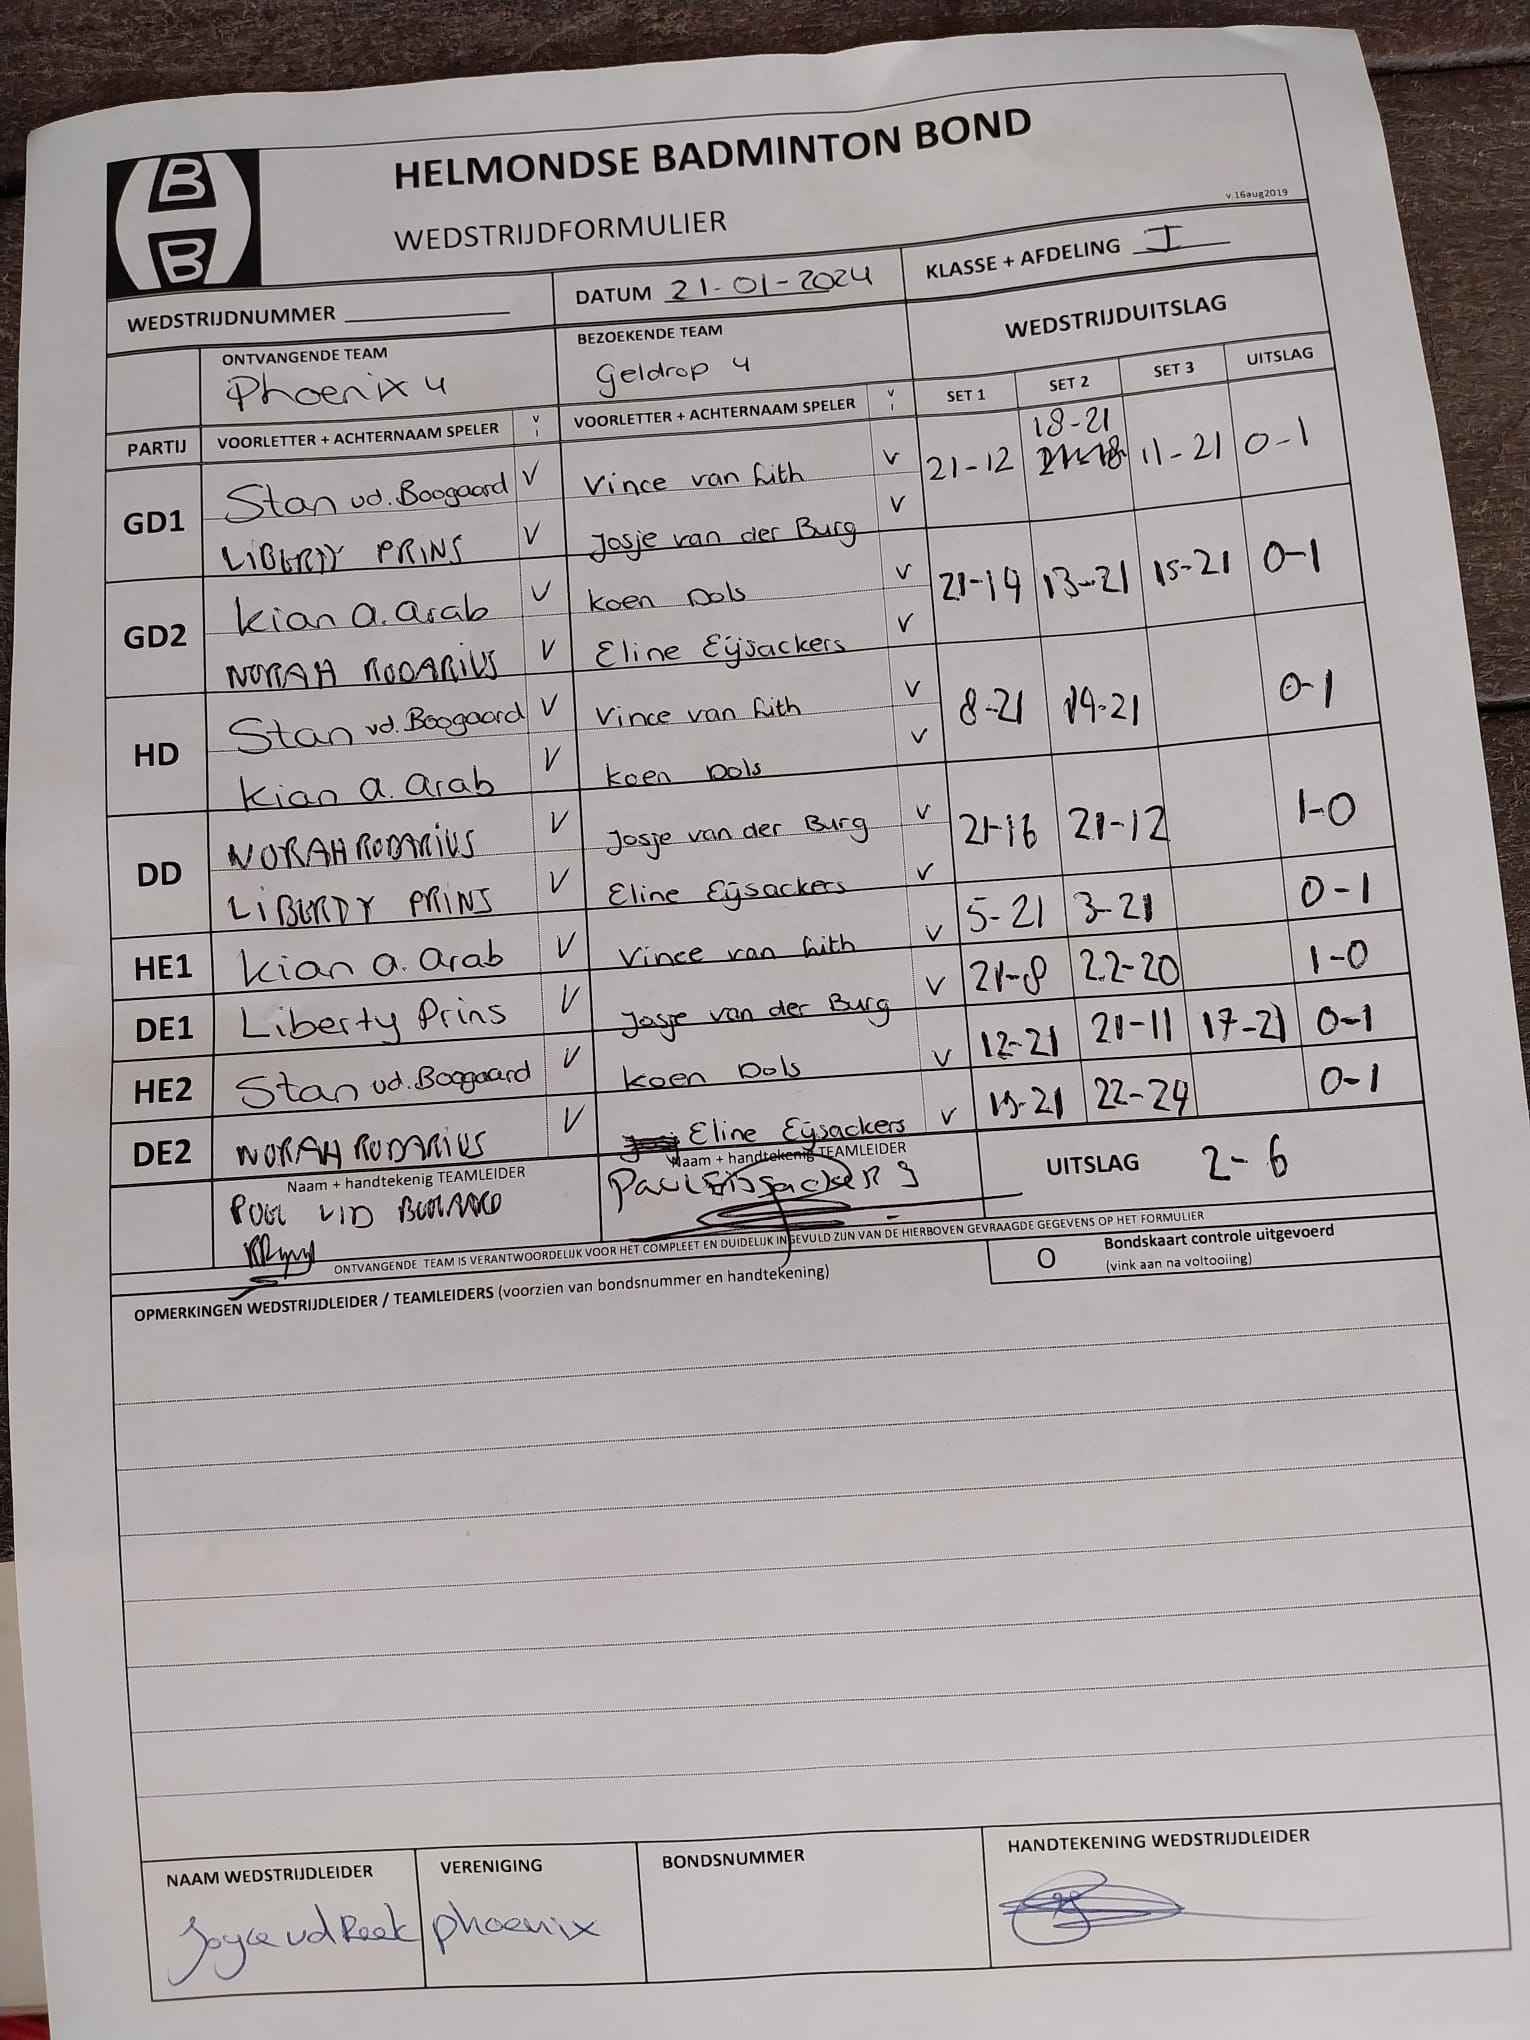 HELMONDSE BADMINTON BOND
WEDSTRIJDFORMULIER
v.16aug2019
WEDSTRIJDNUMMER
DATUM 21-01-2024
KLASSE + AFDELING I
ONTVANGENDE TEAM
Phoenix 4
BEZOEKENDE TEAM
Geldrop 4
WEDSTRIJDUITSLAG
PARTIJ VOORLETTER + ACHTERNAAM SPELER V I VOORLETTER + ACHTERNAAM SPELER V I SET 1 SET 2 SET 3 UITSLAG
GD1 Stan vd. Boogaard V Vince van Lith V 21-12 18-21 11-21 0-1
LIBERTY PRINS V Josje van der Burg V
GD2 Kian a. arab V Koen Dols V 21-19 13-21 15-21 0-1
NORAH RODARIUS V Eline Eijsackers V
HD Stan vd. Boogaard V Vince van Lith V 8-21 19-21 0-1
Kian a. arab V Koen Dols V
DD NORAH RODARIUS V Josje van der Burg V 21-16 21-12 1-0
LIBERTY PRINS V Eline Eijsackers V
HE1 Kian a. arab V Vince van Lith V 5-21 3-21 0-1
DE1 Liberty Prins V Josje van der Burg V 21-8 22-20 1-0
HE2 Stan vd. Boogaard V Koen Dols V 12-21 21-11 17-21 0-1
DE2 NORAH RODARIUS V Eline Eijsackers V 19-21 22-24 0-1
Naam + handtekenig TEAMLEIDER
Naam + handtekenig TEAMLEIDER
Paul Eijsackers
UITSLAG 2-6
ONTVANGENDE TEAM IS VERANTWOORDELIJK VOOR HET COMPLEET EN DUIDELIJK INGEVULD ZIJN VAN DE HIERBOVEN GEVRAAGDE GEGEVENS OP HET FORMULIER
O Bondskaart controle uitgevoerd
(vink aan na voltooiing)
OPMERKINGEN WEDSTRIJDLEIDER / TEAMLEIDERS (voorzien van bondsnummer en handtekening)
NAAM WEDSTRIJDLEIDER VERENIGING BONDSNUMMER HANDTEKENING WEDSTRIJDLEIDER
Joyce vd Reek Phoenix